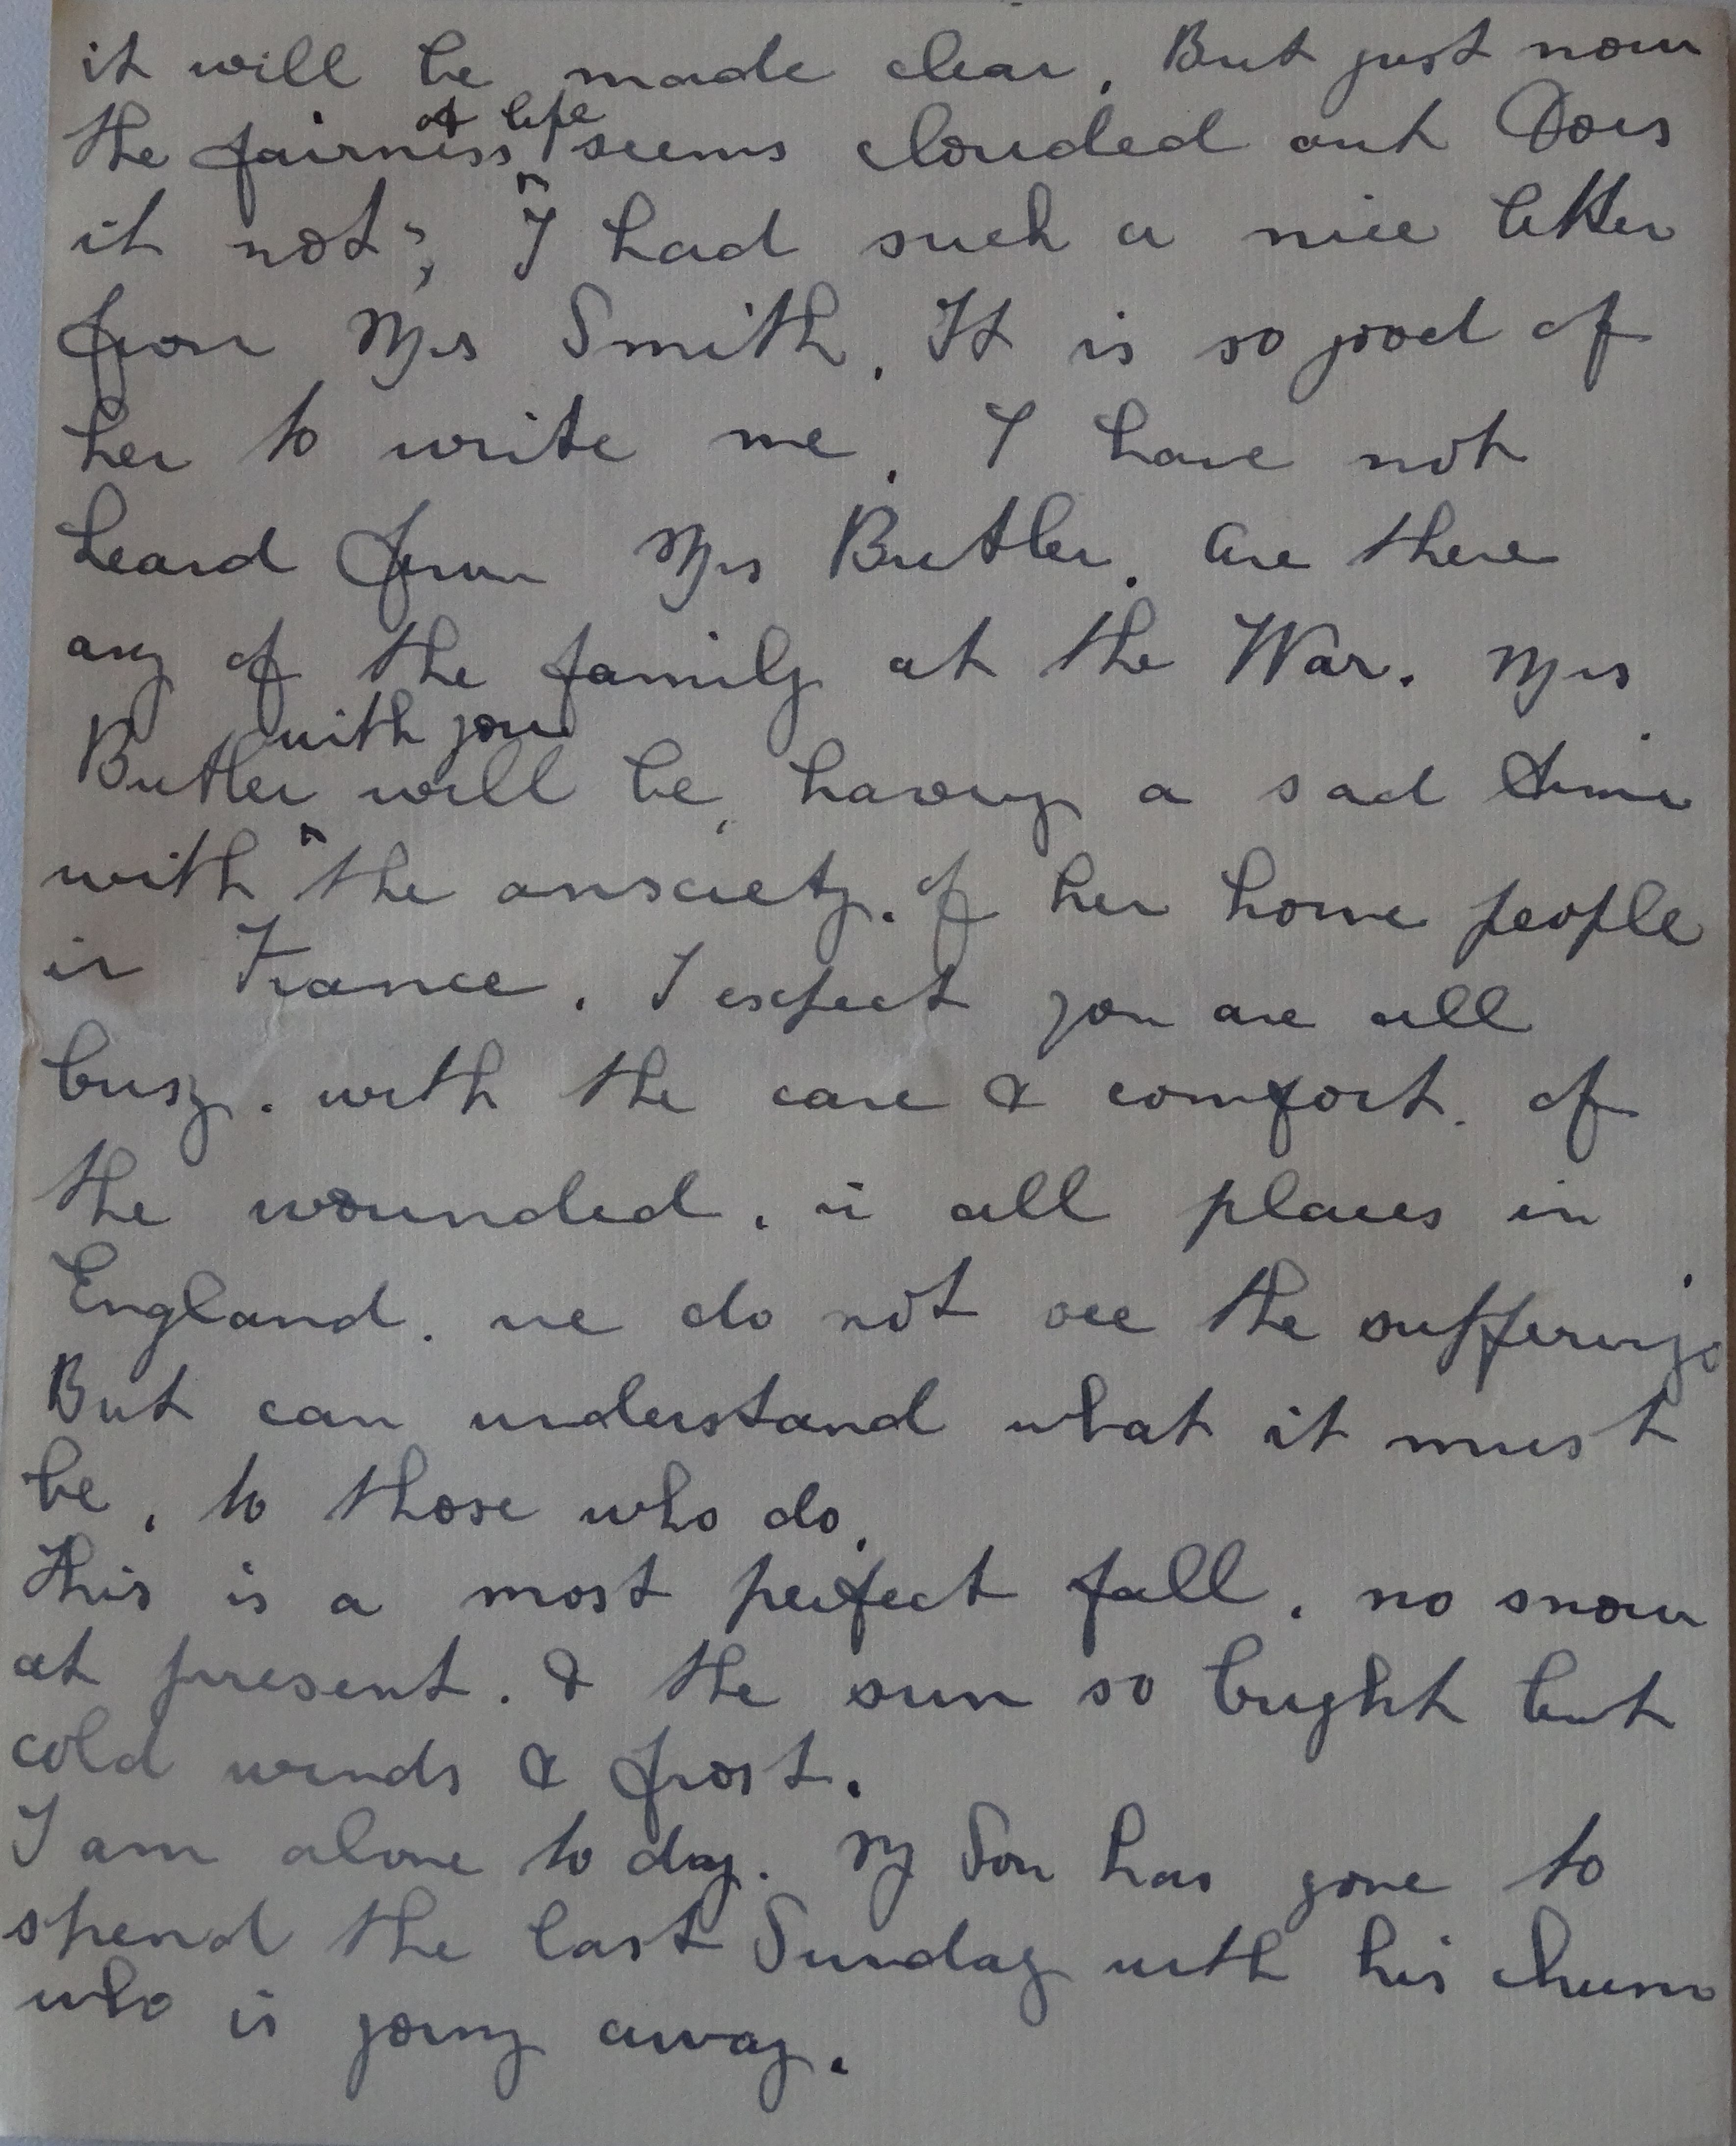 it will be made clear. But just now
of life
the fairness seems clouded out Does
it not? I had such a nice letter
from Mrs Smith. It is so good of
her to write me. I have not
heard from Mrs Butler. are there
any of the family at the War. Mrs
with you
Butler will be, having a sad time
with the anxiety. of her home people
in France. I expect you are all
busy. with the care & comfort. of
the wounded. in all places in
England. we do not see the sufferings
But can understand what it must
be. to those who do.
This is a most perfect fall. no snow
at present. & the sun so bright but
cold winds & frost.
I am alone to day. My Son has gone to
spend the last Sunday with his chum
who is going away.